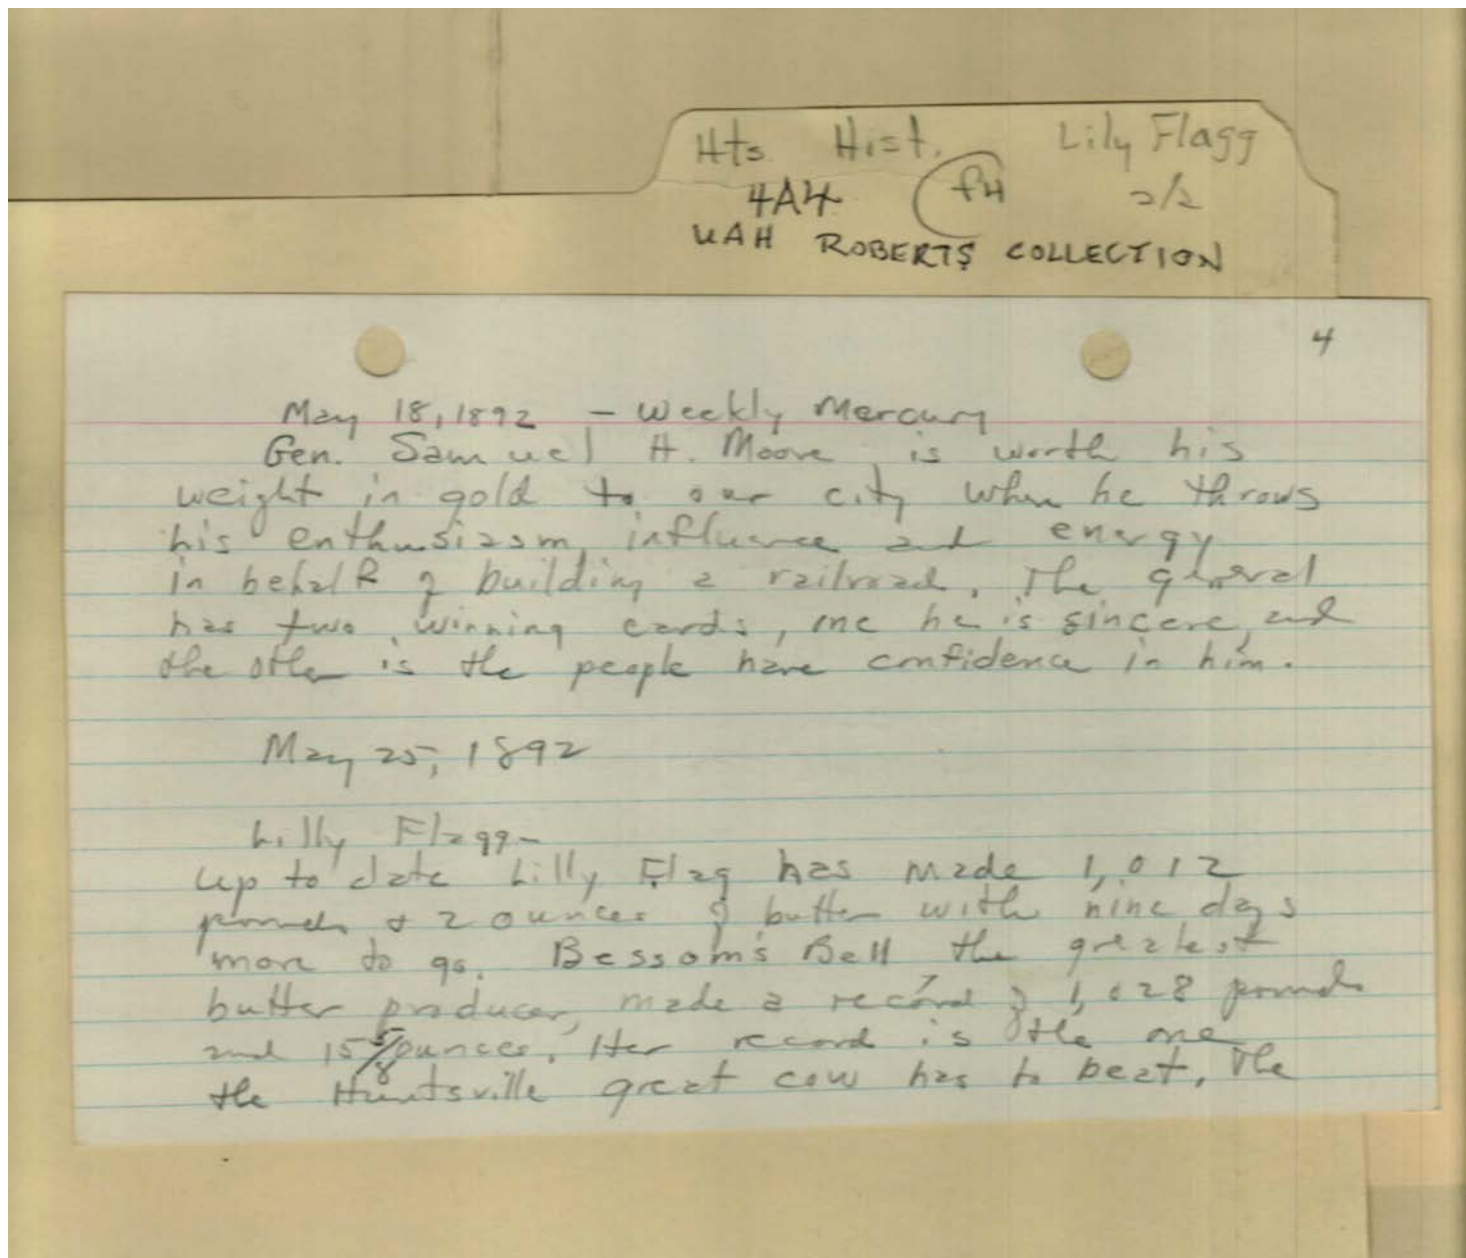 Hts Hist. Lily Flagg
4A4 f4 2/2
UAH ROBERTS COLLECTION
4
May 18, 1892 - Weekly Mercury
Gen. Samuel H. Moore is worth his
weight in gold to our city when he throws
his enthusiasm, influence and energy
in behalf of building a railroad. The general
has two winning cards, one he is sincere, and
the other is the people have confidence in him.
May 25, 1892
Lilly Flagg-
Up to date Lilly Flag has made 1,012
pounds & 2 ounces of butter with nine days
more to go. Bessom's Bell the greatest
butter producer, made a record of 1,028 pounds
and 15 5/8 ounces. Her record is the one
the Huntsville great cow has to beat. The